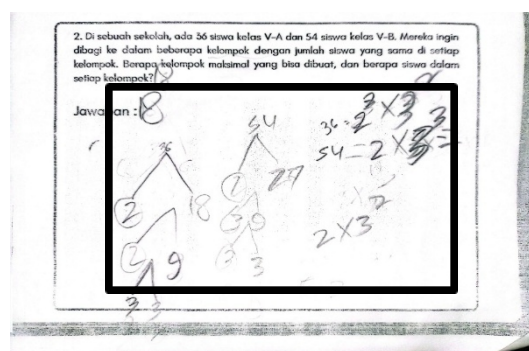 2. Di sebuah sekolah, ada 36 siswa kelas V-A dan 54 siswa kelas V-B. Mereka ingin
dibagi ke dalam beberapa kelompok dengan jumlah siswa yang sama di setiap
kelompok. Berapa kelompok maksimal yang bisa dibuat, dan berapa siswa dalam
setiap kelompok? 18
Jawaban : 18
36
2 18
2 9
3 3
54
27
9
3 3
36 = 2² × 3²
54 = 2 × 3³ =
2 × 3²